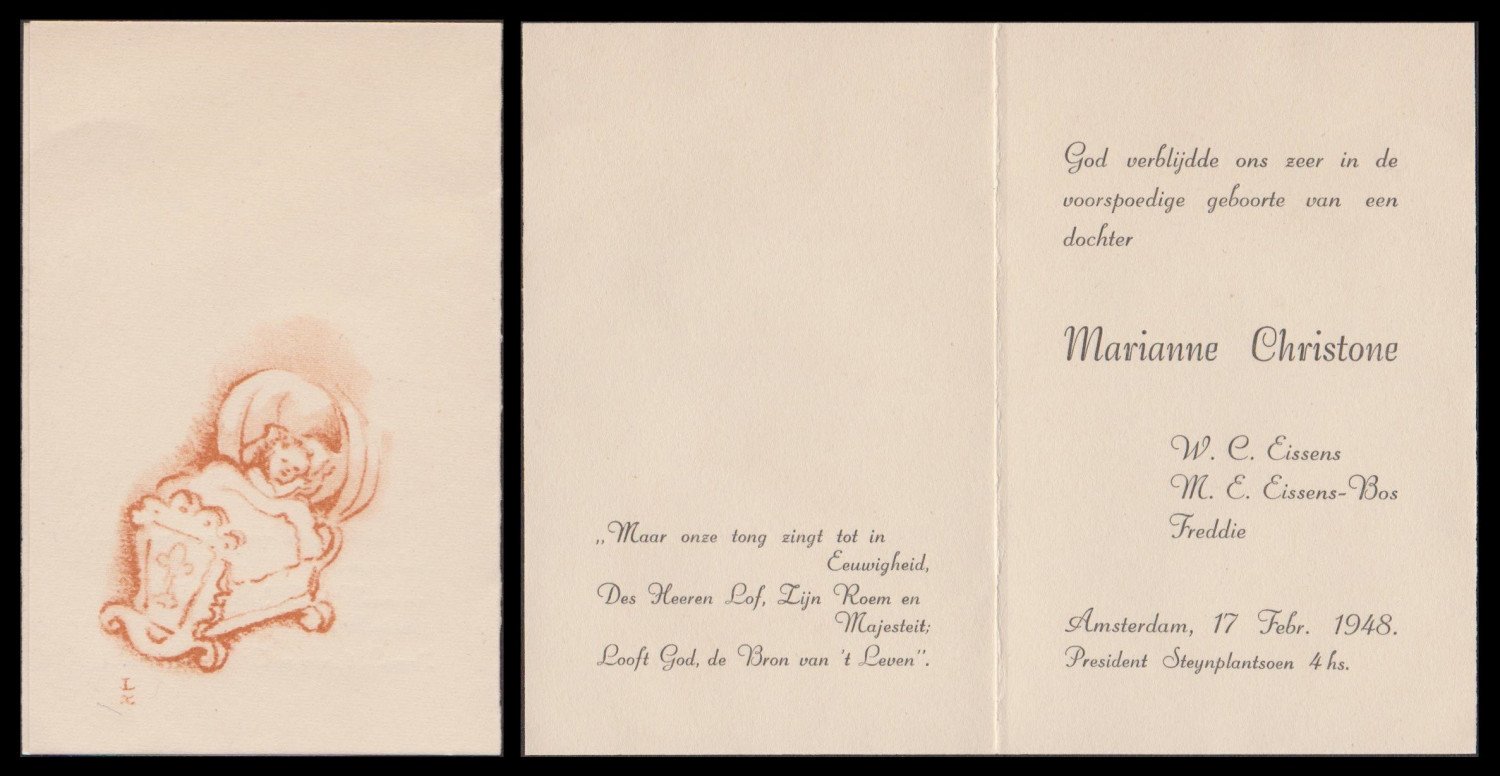 L
„Maar onze tong zingt tot in
Eeuwigheid,
Des Heeren Lof, Zijn Roem en
Majesteit;
Looft God, de Bron van 't Leven".
God verblijdde ons zeer in de
voorspoedige geboorte van een
dochter
Marianne Christone
W. C. Eissens
M. E. Eissens-Bos
Freddie
Amsterdam, 17 Febr. 1948.
President Steynplantsoen 4 hs.